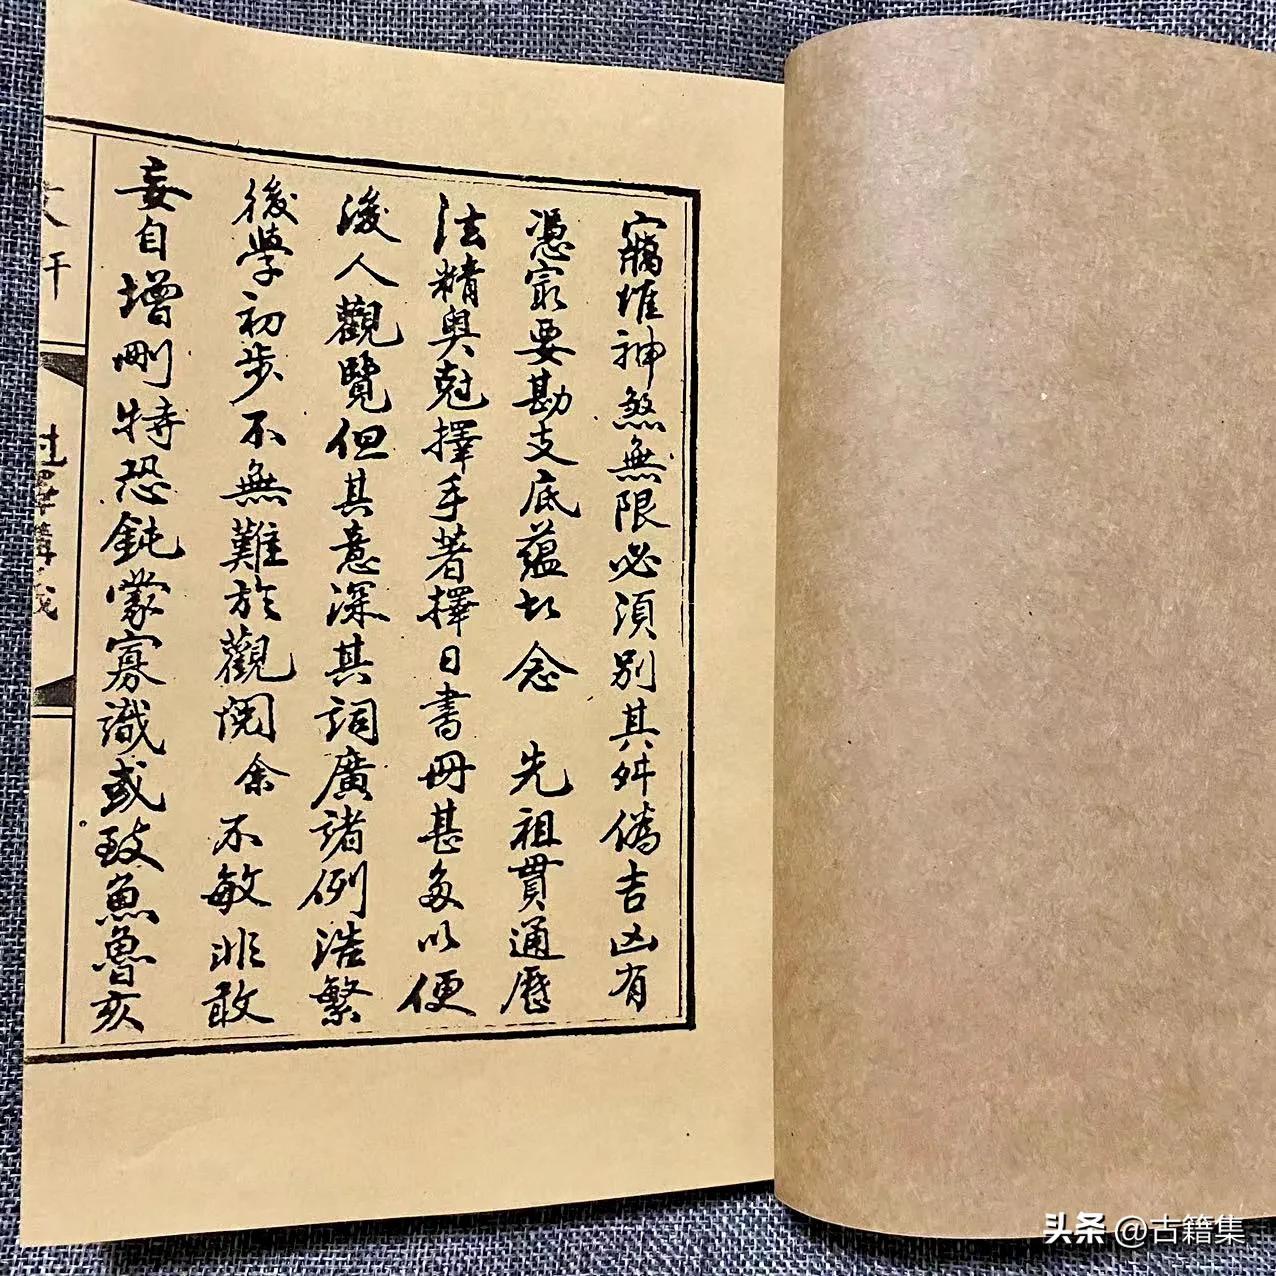 竊惟神煞無限必須別其舛僞吉凶有
憑寂要勘支底蘊切念 先祖貫通曆
法精奥尅擇手著擇日書冊甚多以便
後人觀覽但其意深其詞廣諸例浩繁
後學初步不無難於觀閱余不敏非敢
妄自增刪特恐鈍蒙寡識或致魚魯亥
尅擇講義
头条 @古籍集